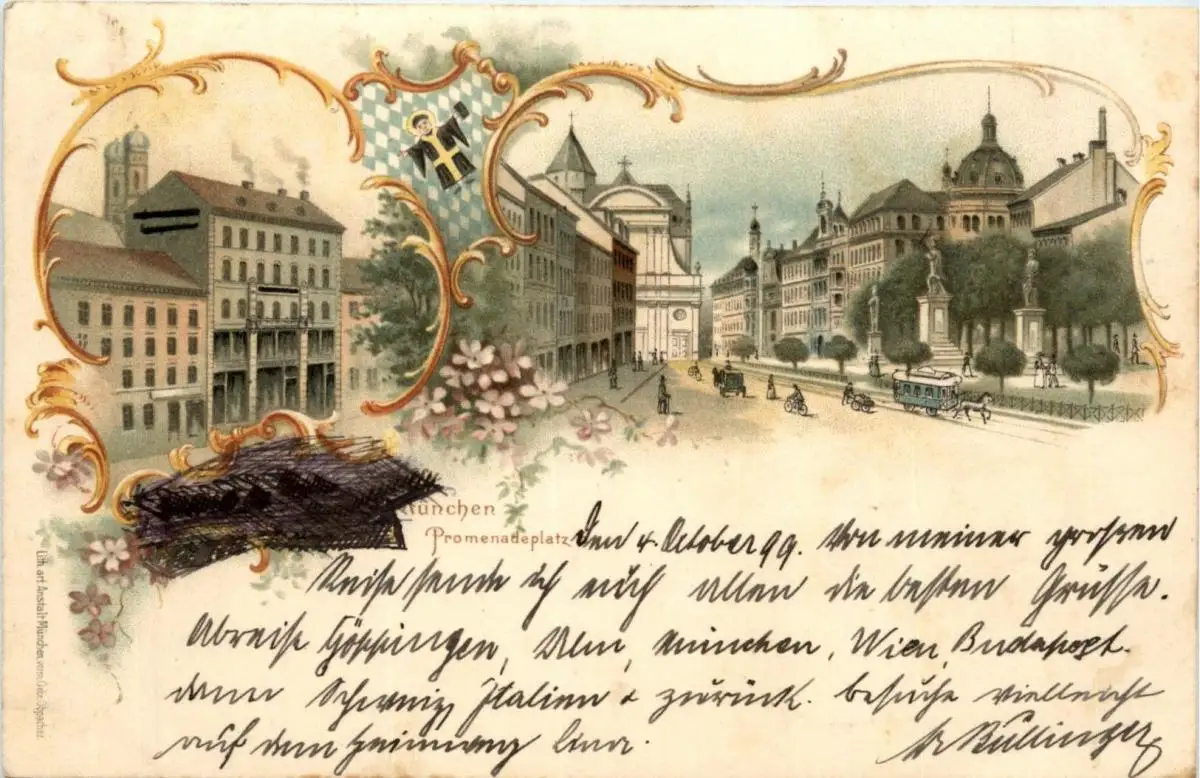 München
Promenadeplatz
Den 4. October 99. Von meiner grossen
Reise sende ich euch allen die besten Grüsse.
Abreise Göppingen, Ulm, München, Wien, Budapest.
dann Schweiz, Italien & zurück. besuche vielleicht
auf dem Heimweg
Bullinger
Lith. art. Anstalt München, vorm. Gebr. Obpacher.